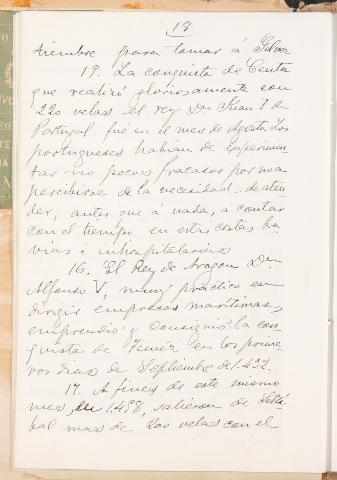 18
tiembre para tomar á Gelves
19. La conquista de Ceuta
que realizó gloriosamente con
220 velas el rey Dn. Juan I de
Portugal fué en el mes de Agosto. Los
portugueses habian de esperimen-
tar no pocos fracasos por no a
percibirse de la necesidad de aten
der, antes que á nada, á contar
con el tiempo en estas costas bra
vias é inhospitalarias
16. El Rey de Aragon Dn
Alfonso V, muy práctico en
dirigir empresas maritimas,
emprendió y consiguió la con
quista de Tunéz en los prime
ros dias de Septiembre de 1.432.
17. A fines de este mismo
mes, de 1.458, salieron de Setú
bal mas de 200 velas con el